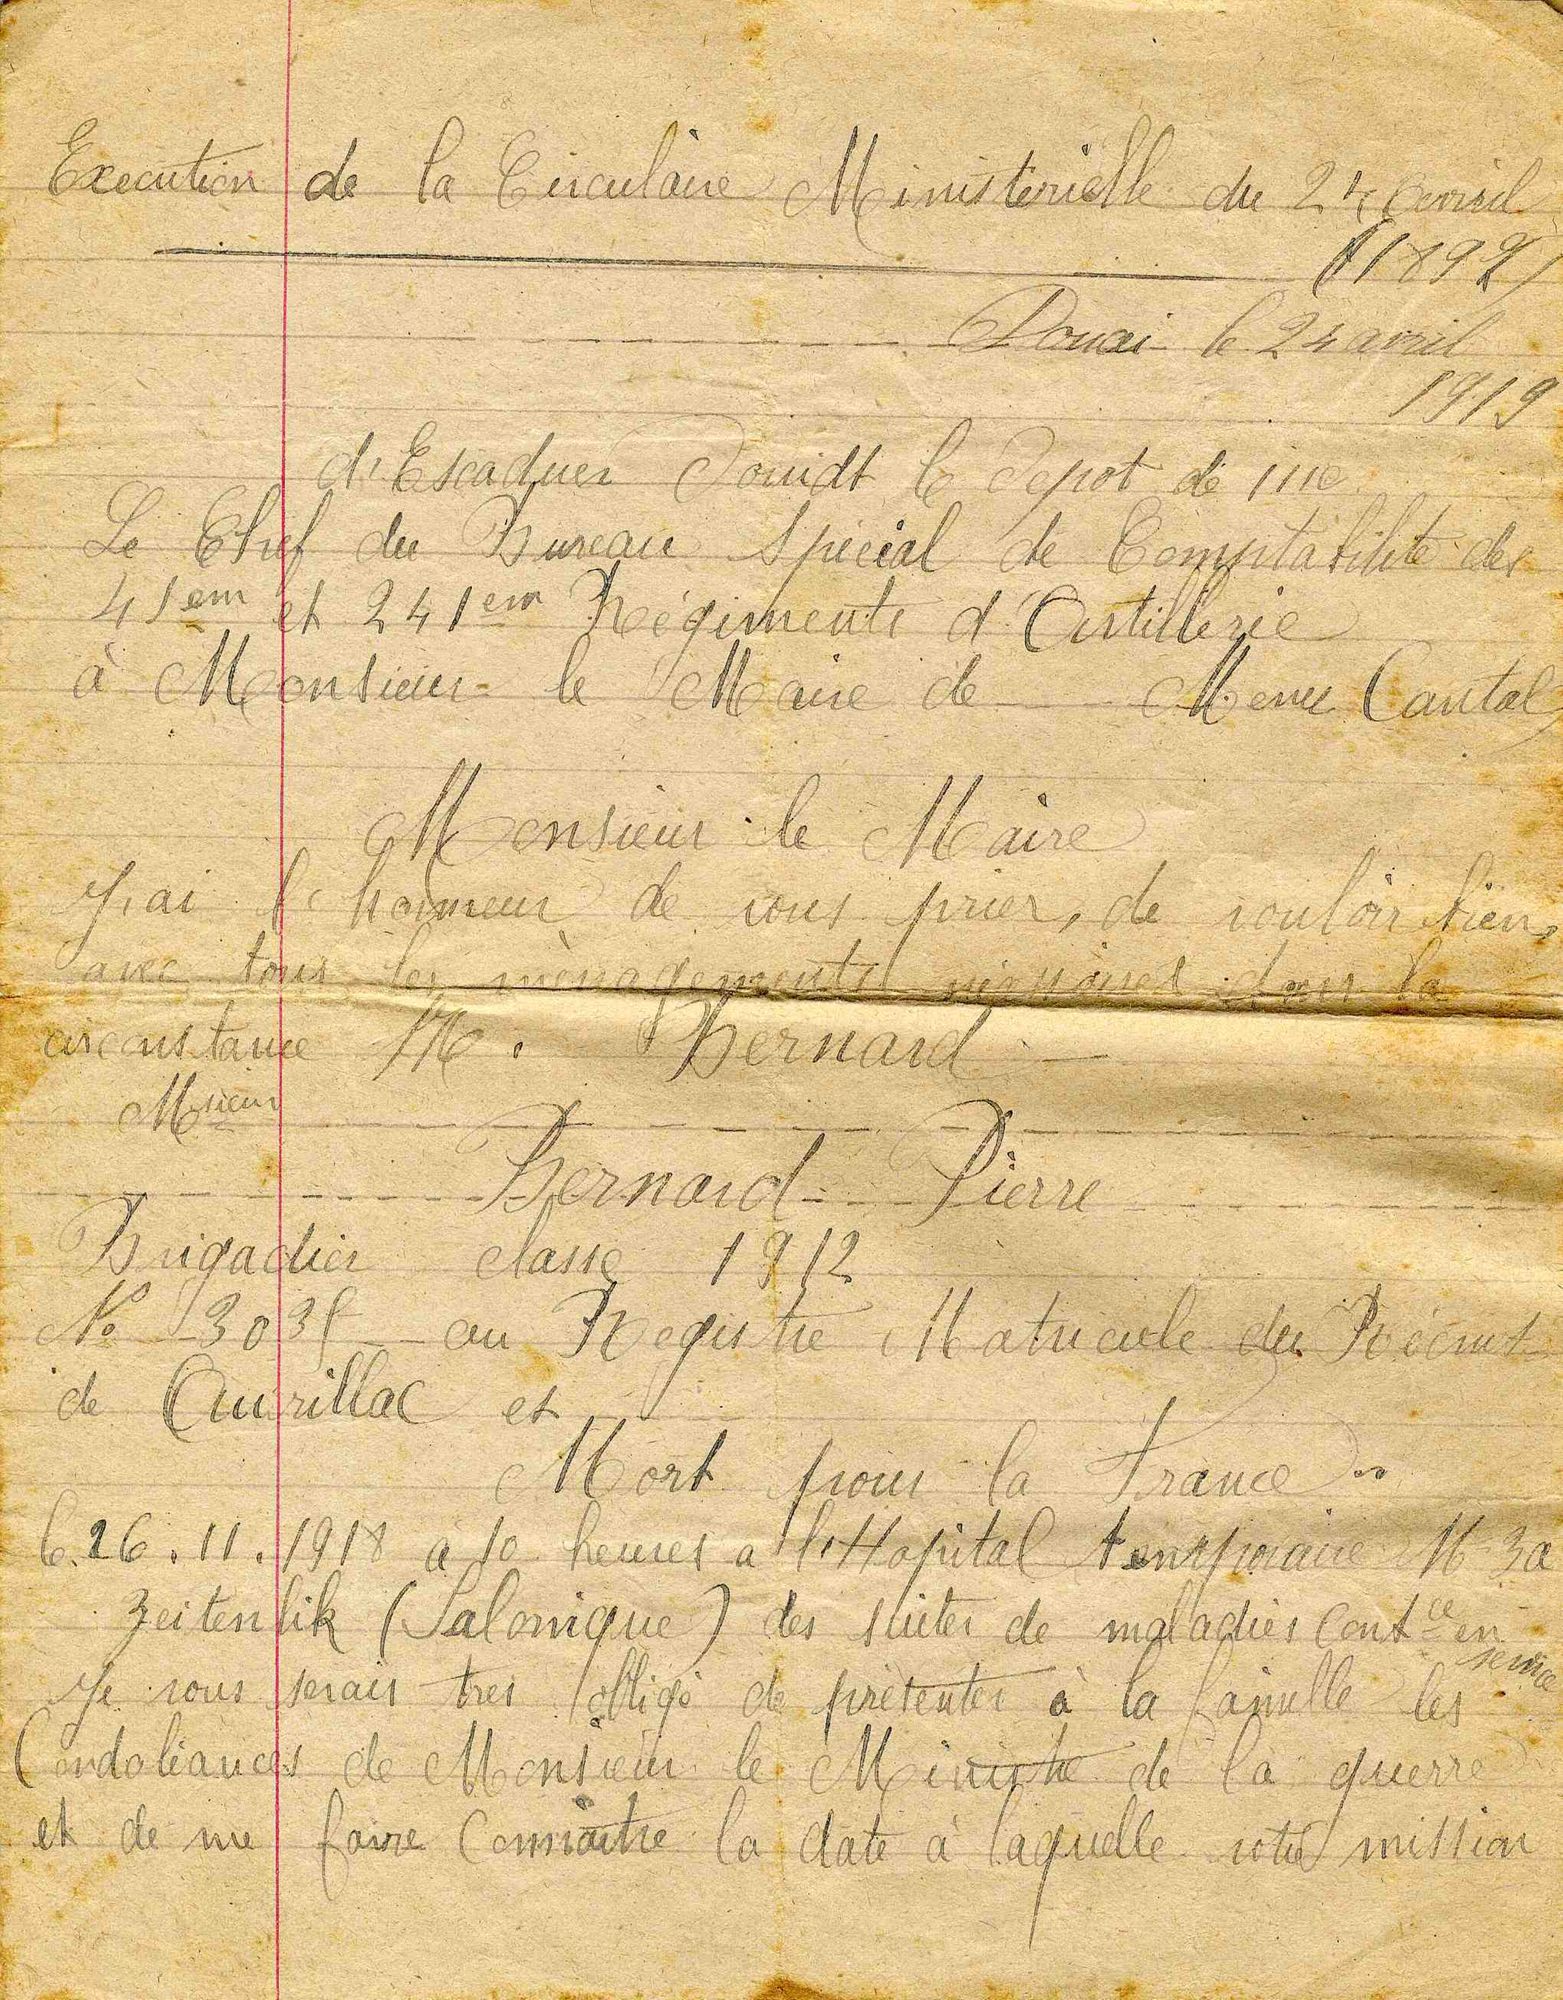 Execution de la Circulaire Ministerielle du 24 Avril
(1892)
Douai le 24 avril
1919
d'Escaduer le Depot de
Le Chef du Bureau Spécial de Comptabilité des
41em et 241em Régiments d'Artillerie
à Monsieur le Maire de Menu Cantal
Monsieur le Maire
J'ai l'honneur de vous prier, de vouloir bien,
avec tous les ménagements dans la
circonstance M. Bernard
Msieur
Bernard Pierre
Brigadier classe 1912
No au Registre Matricule du Récrut
de Aurillac et
Mort pour la France
le 26.11.1918 à 10 heures a l'Hopital temporaire
Zeitenlik (Salonique) des suites de maladies Contce en
service
Je vous serais tres obligé de présenter à la famille les
Condoliances de Monsieur le Ministre de la guerre
et de me faire Connaitre la date à laquelle votre mission